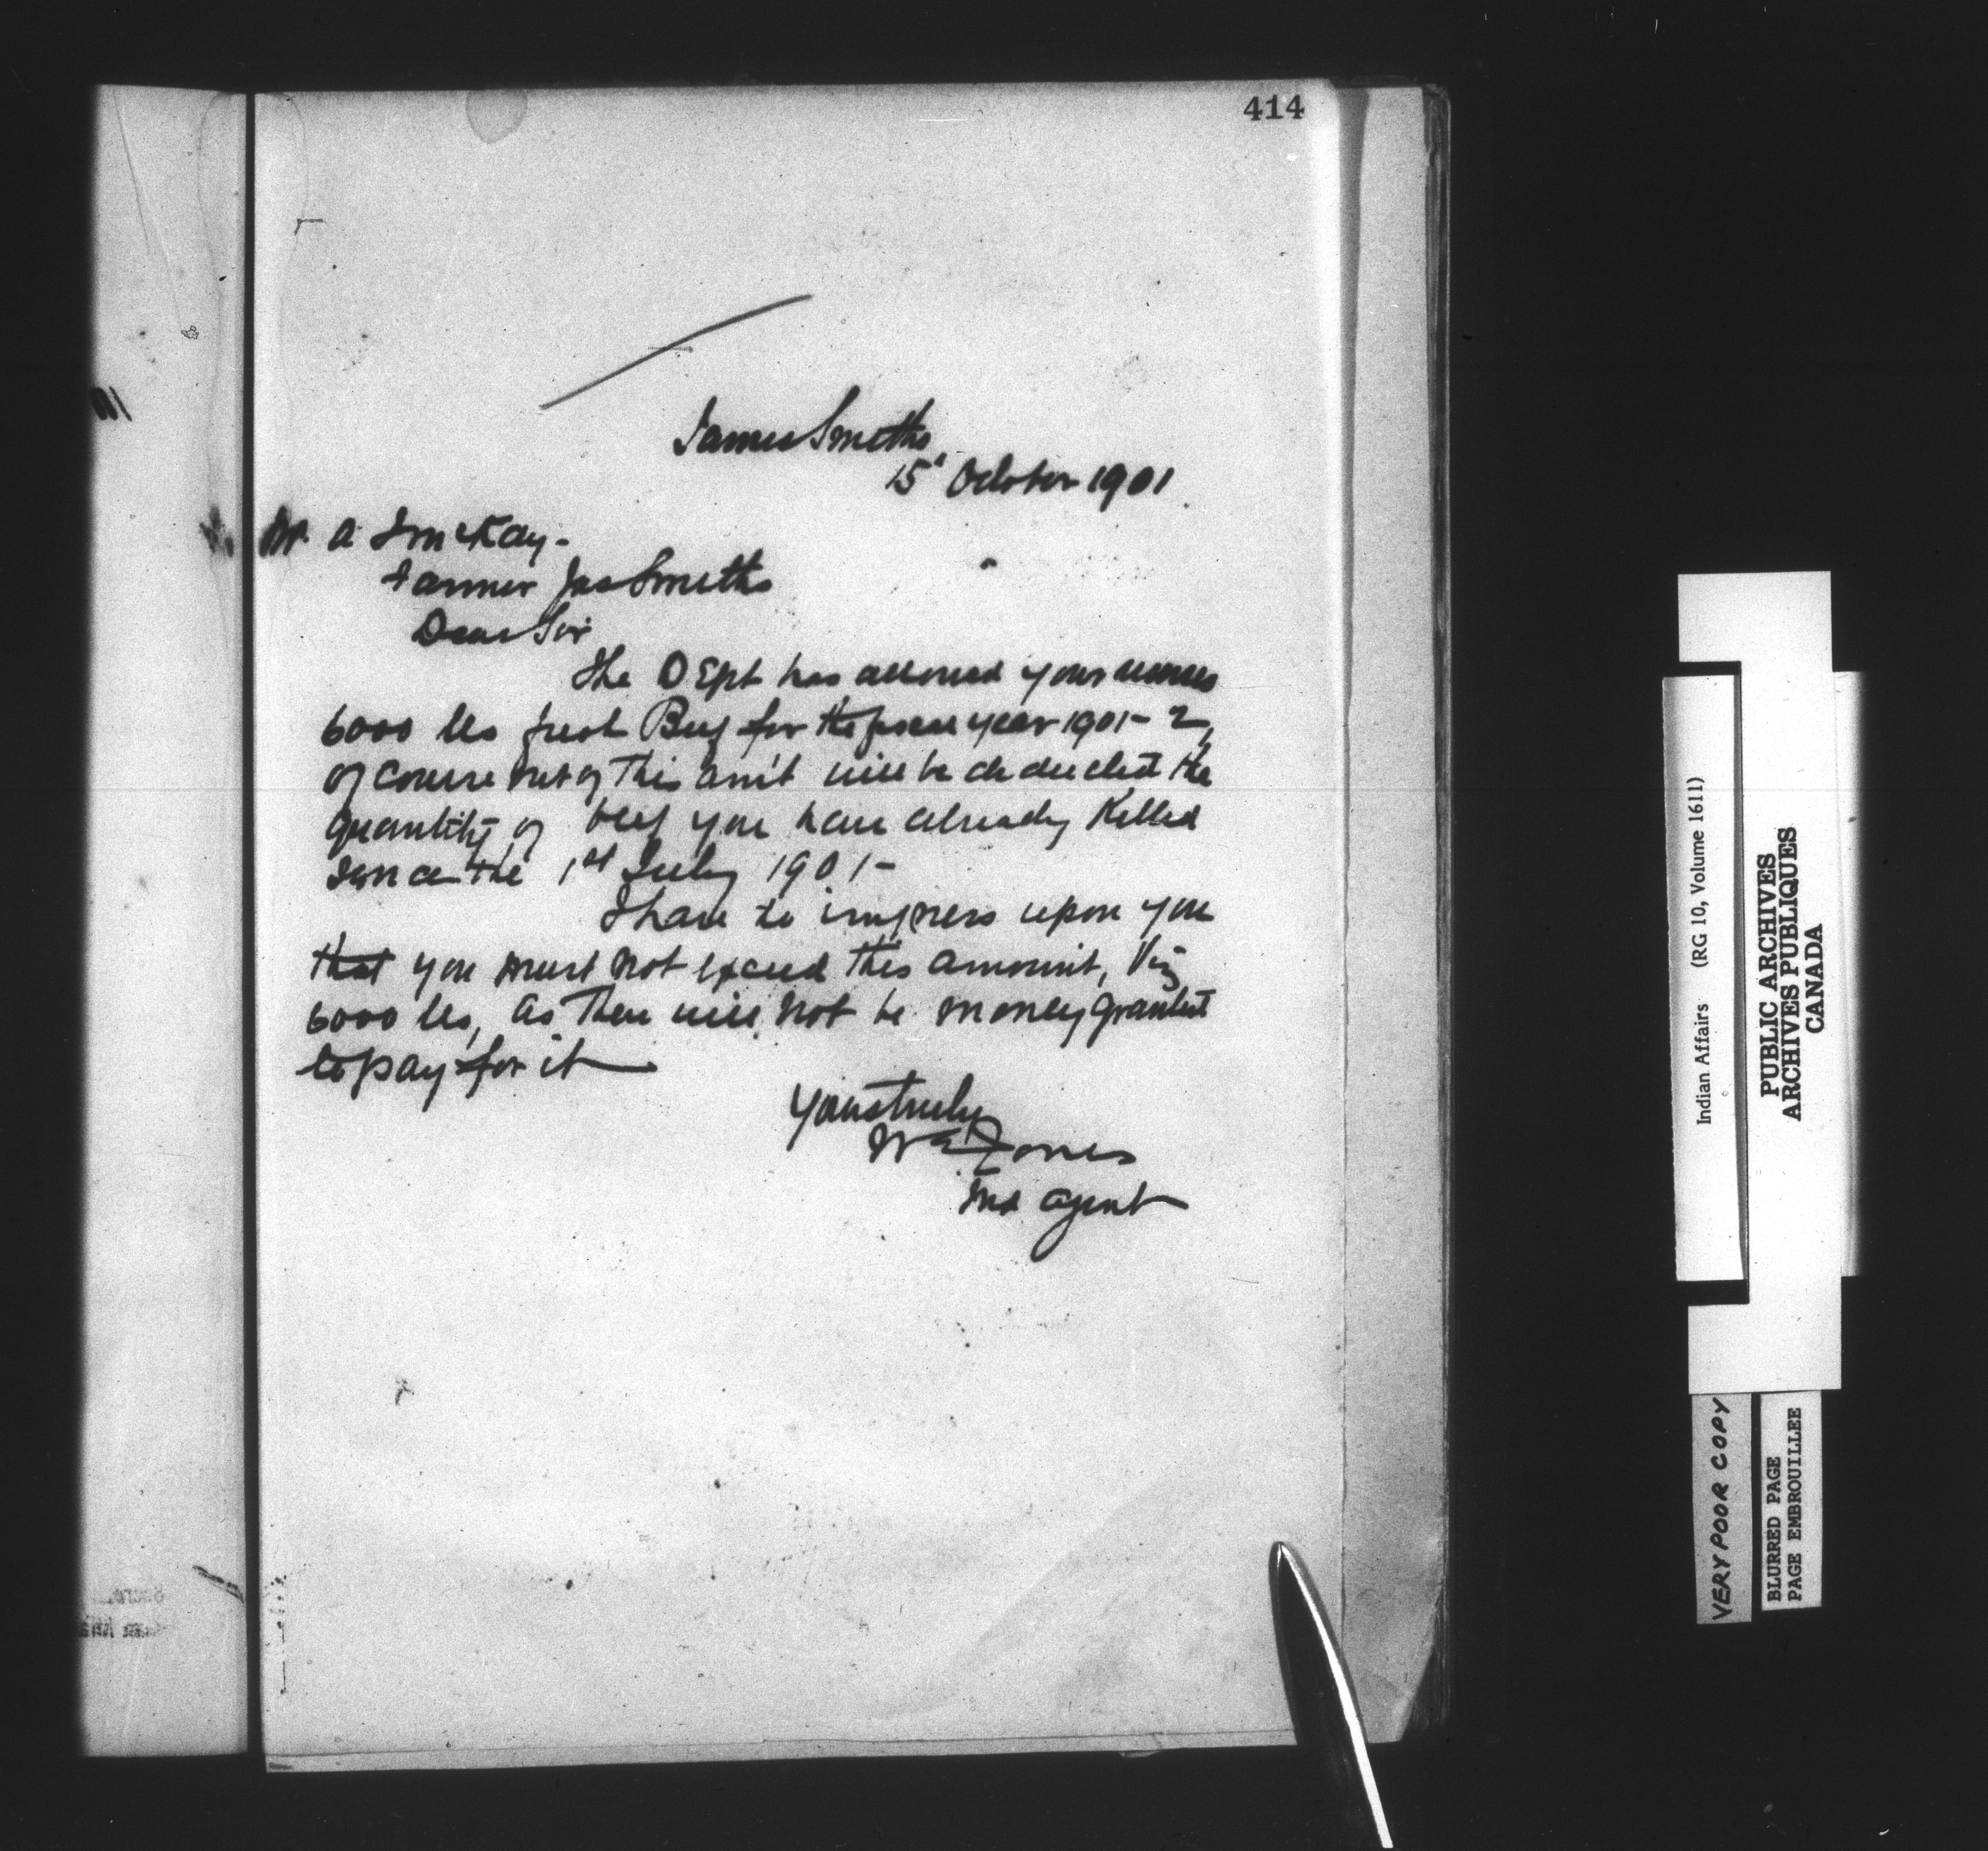 414
James Smiths
15' October 1901
Mr. A J McKay-
Farmer Jas Smiths
Dear Sir
The DEpt has allowed your
6000 lbs fresh Beef for the fiscal year 1901-2,
of course out of this am't will be deducted the
quantity of beef you have already Killed
since the 1st July 1901-
I have to impress upon you
that you must not exceed this amount, Viz
6000 lbs, as there will not be money granted
to pay for it
Yours truly
W E Jones
Ind Agent
Indian Affairs (RG 10, Volume 1611)
PUBLIC ARCHIVES
ARCHIVES PUBLIQUES
CANADA
VERY POOR COPY
BLURRED PAGE
PAGE EMBROUILLEE